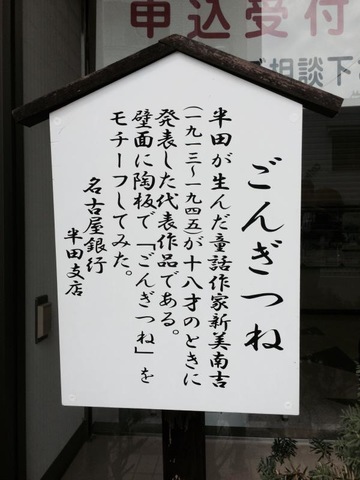 申込受付
ご相談下
ごんぎつね
半田が生んだ童話作家新美南吉
(一九一三〜一九四五)が十八才のときに
発表した代表作品である。
壁面に陶板で「ごんぎつね」を
モチーフしてみた。
名古屋銀行
半田支店